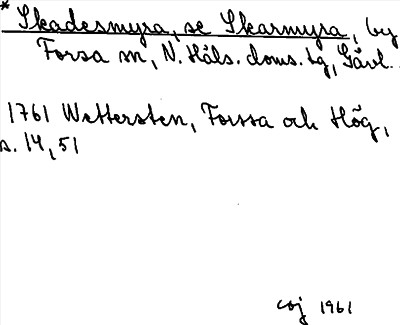 * Skadesmyra, se Skarmyra, by
Forsa sn, N. Häls. doms. tg, Gävl.
1761 Wettersten, Forssa och Hög,
s. 14, 51
coj 1961